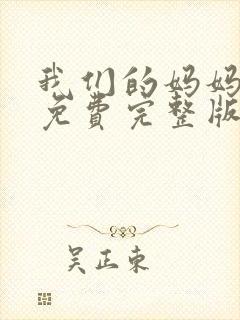 我们的妈妈
免费完整版
吴正东